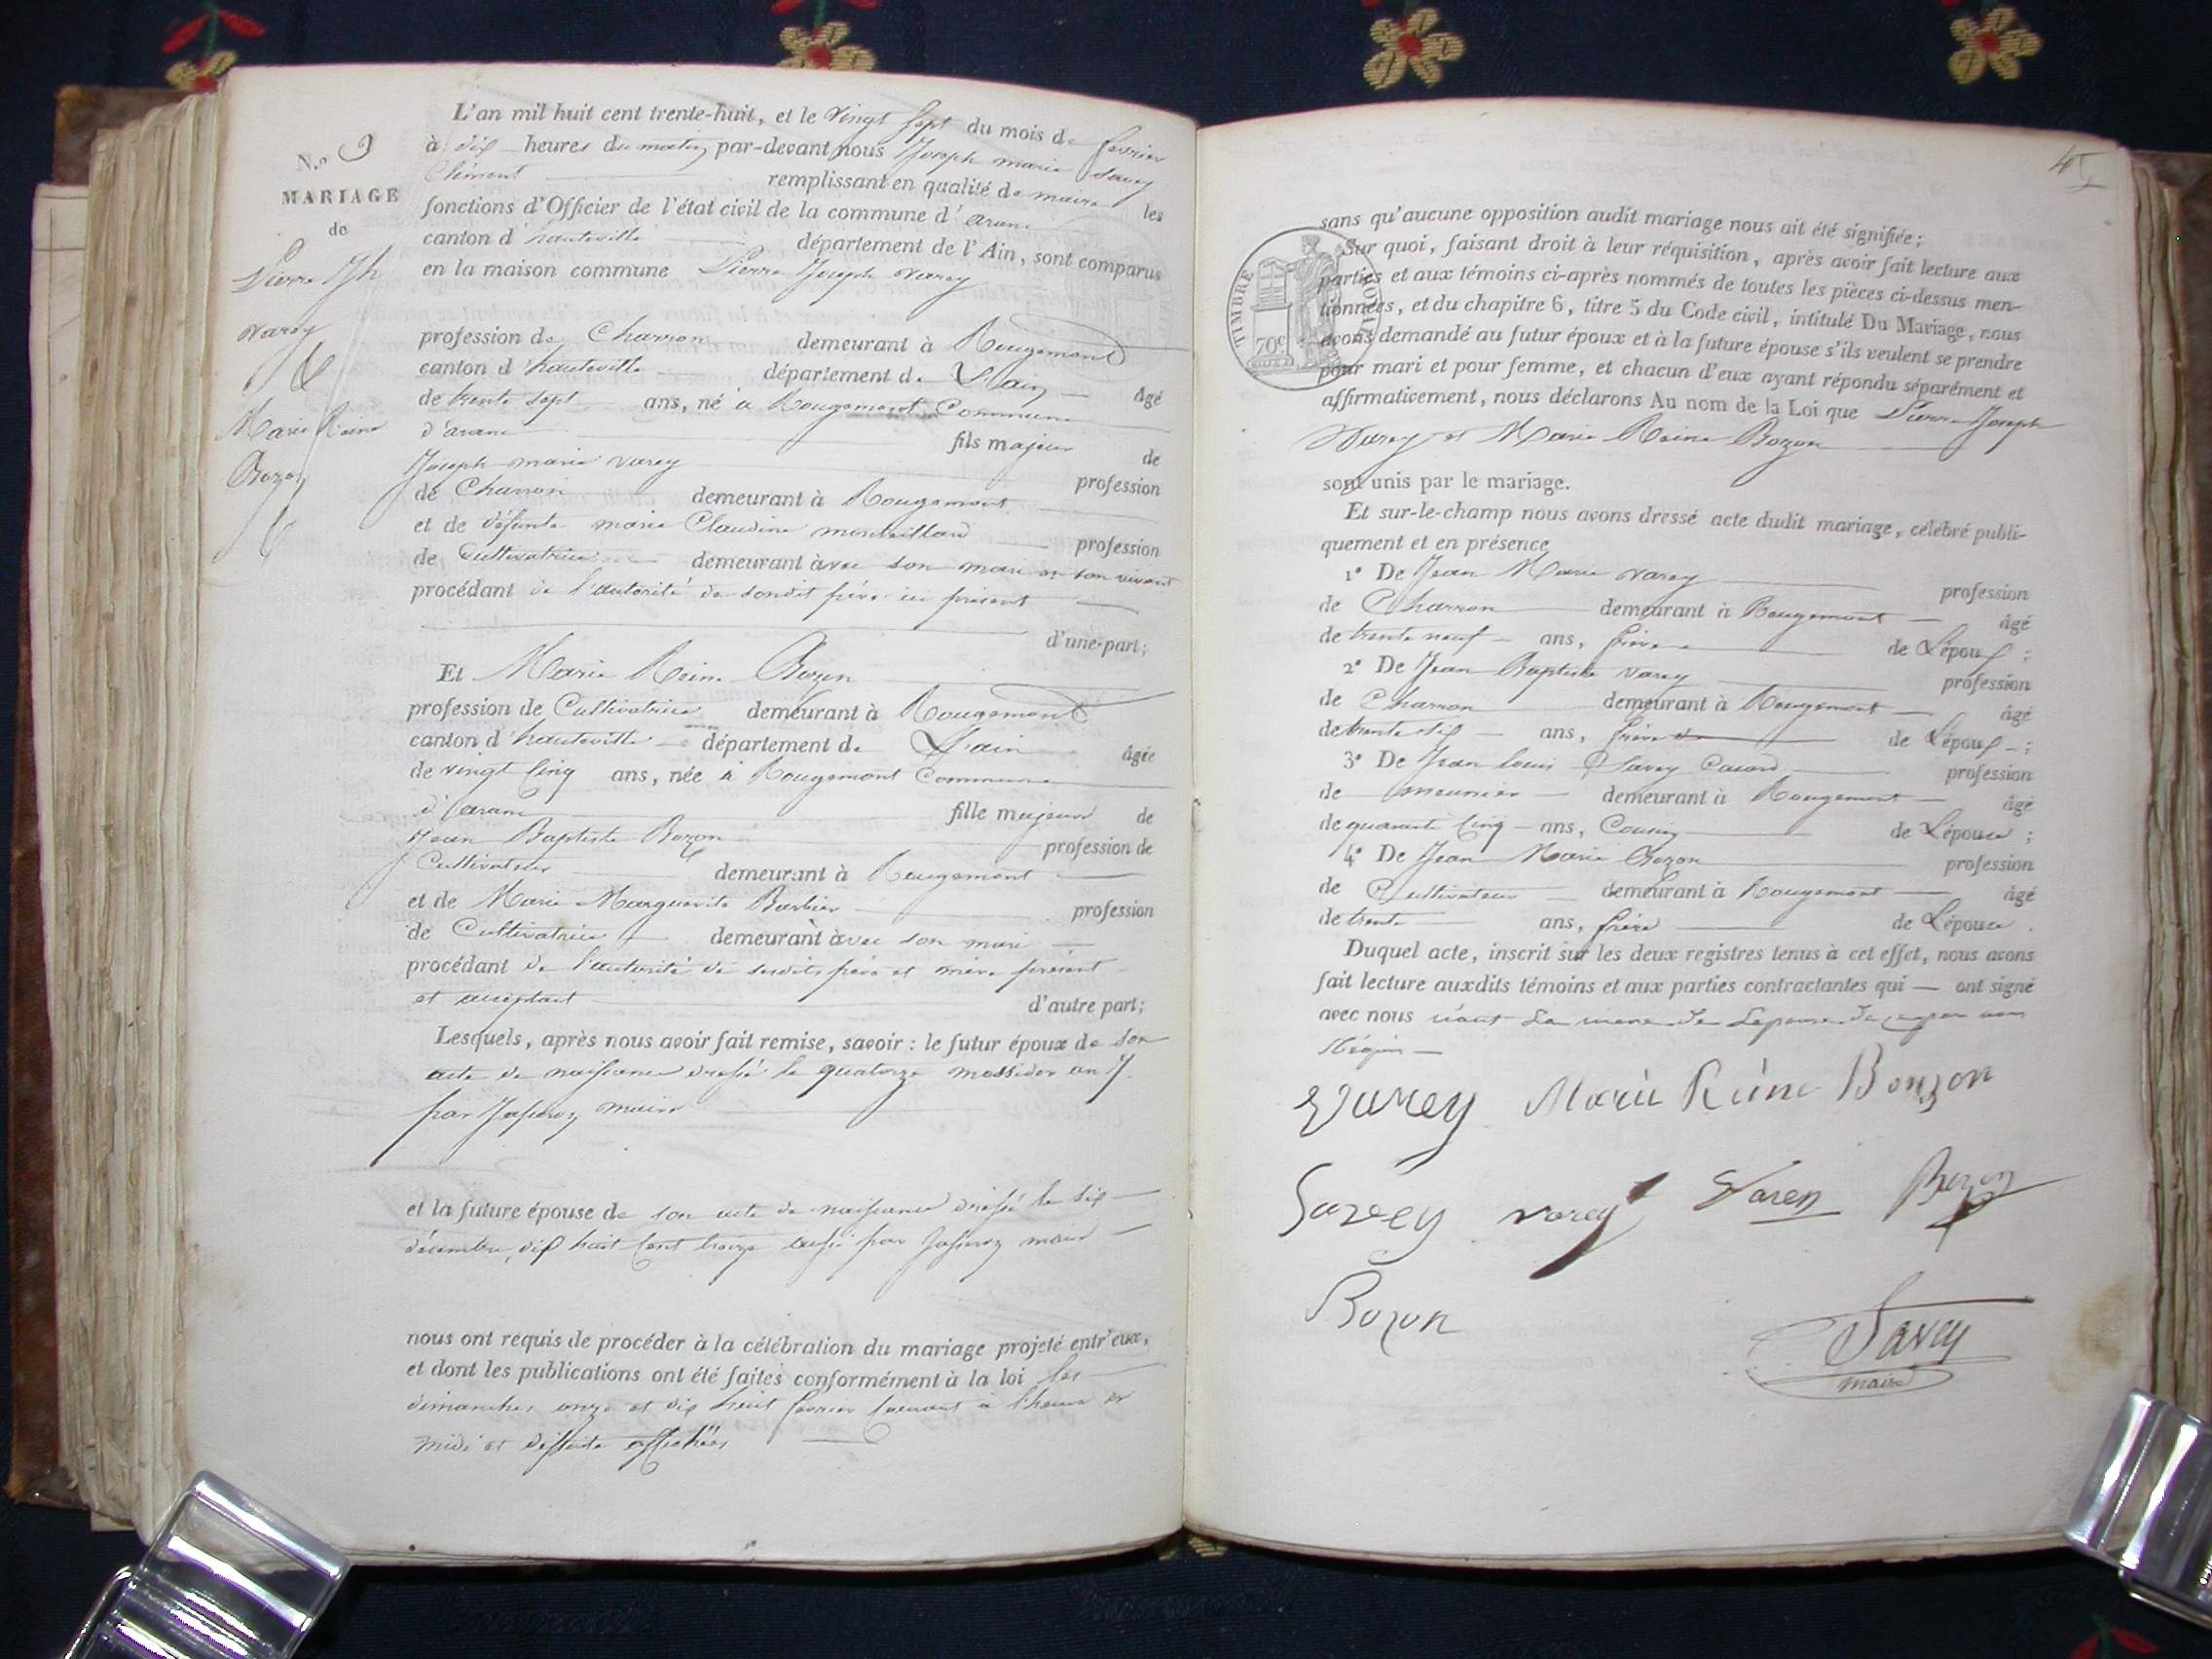 N.o 9
MARIAGE
de
Pierre Jh
Varey
&
Marie Reine
Bozon
L'an mil huit cent trente-huit, et le vingt sept du mois de fevrier
à dix heures du matin par-devant nous Joseph marie Savey
Clément remplissant en qualité de maire les
fonctions d'Officier de l'état civil de la commune d'aranc
canton d'hauteville département de l'Ain, sont comparus
en la maison commune Pierre Joseph varey
profession de Charron demeurant à Rougemont
canton d'hauteville département de L'ain âgé
de trente sept ans, né à Rougemont Commune
d'aranc fils majeur de
Joseph marie varey profession
de Charron demeurant à Rougemont
et de défunte marie Claudine montbillard profession
de Cultivatrice demeurant avec son mari en son vivant
procédant de l'autorité de sondit père ici présent
d'une-part;
Et Marie Reine Bozon
profession de Cultivatrice demeurant à Rougemont
canton d'hauteville département de L'ain âgée
de vingt cinq ans, née à Rougemont Commune
d'aranc fille majeure de
Jean Baptiste Bozon profession de
Cultivateur demeurant à Rougemont
et de Marie Marguerite Barbier profession
de Cultivatrice demeurant avec son mari
procédant de l'autorité de sesdits père et mère présent
et acceptant d'autre part;
Lesquels, après nous avoir fait remise, savoir : le futur époux de son
acte de naissance dressé le quatorze messidor an
par maire
et la future épouse de son acte de naissance dressé le six
décembre dix huit cent treize aussi par maire
nous ont requis de procéder à la célébration du mariage projeté entr'eux,
et dont les publications ont été faites conformément à la loi les
dimanches onze et dix huit fevrier courant à l'heure de
midi et affichées
45
TIMBRE ROYAL
70c
sans qu'aucune opposition audit mariage nous ait été signifiée;
Sur quoi, faisant droit à leur réquisition, après avoir fait lecture aux
parties et aux témoins ci-après nommés de toutes les pièces ci-dessus men-
tionnées, et du chapitre 6, titre 5 du Code civil, intitulé Du Mariage, nous
avons demandé au futur époux et à la future épouse s'ils veulent se prendre
pour mari et pour femme, et chacun d'eux ayant répondu séparément et
affirmativement, nous déclarons Au nom de la Loi que Pierre Joseph
Varey et Marie Reine Bozon
sont unis par le mariage.
Et sur-le-champ nous avons dressé acte dudit mariage, célébré publi-
quement et en présence
1° De Jean Marie varey profession
de Charron demeurant à Rougemont âgé
de trente neuf ans, frère de L'époux ;
2° De Jean Baptiste varey profession
de Charron demeurant à Rougemont âgé
de trente six ans, frère de L'époux ;
3° De Jean louis Savey profession
de meunier demeurant à Rougemont âgé
de quarante cinq ans, Cousin de L'épouse ;
4° De Jean Marie Bozon profession
de Cultivateur demeurant à Rougemont âgé
de trente ans, frère de L'épouse .
Duquel acte, inscrit sur les deux registres tenus à cet effet, nous avons
fait lecture auxdits témoins et aux parties contractantes qui — ont signé
avec nous la mere de Lepouse de
Varey Marie Reine Bonzon
Savey varey Varey Bozon
Bozon
Savey
maire